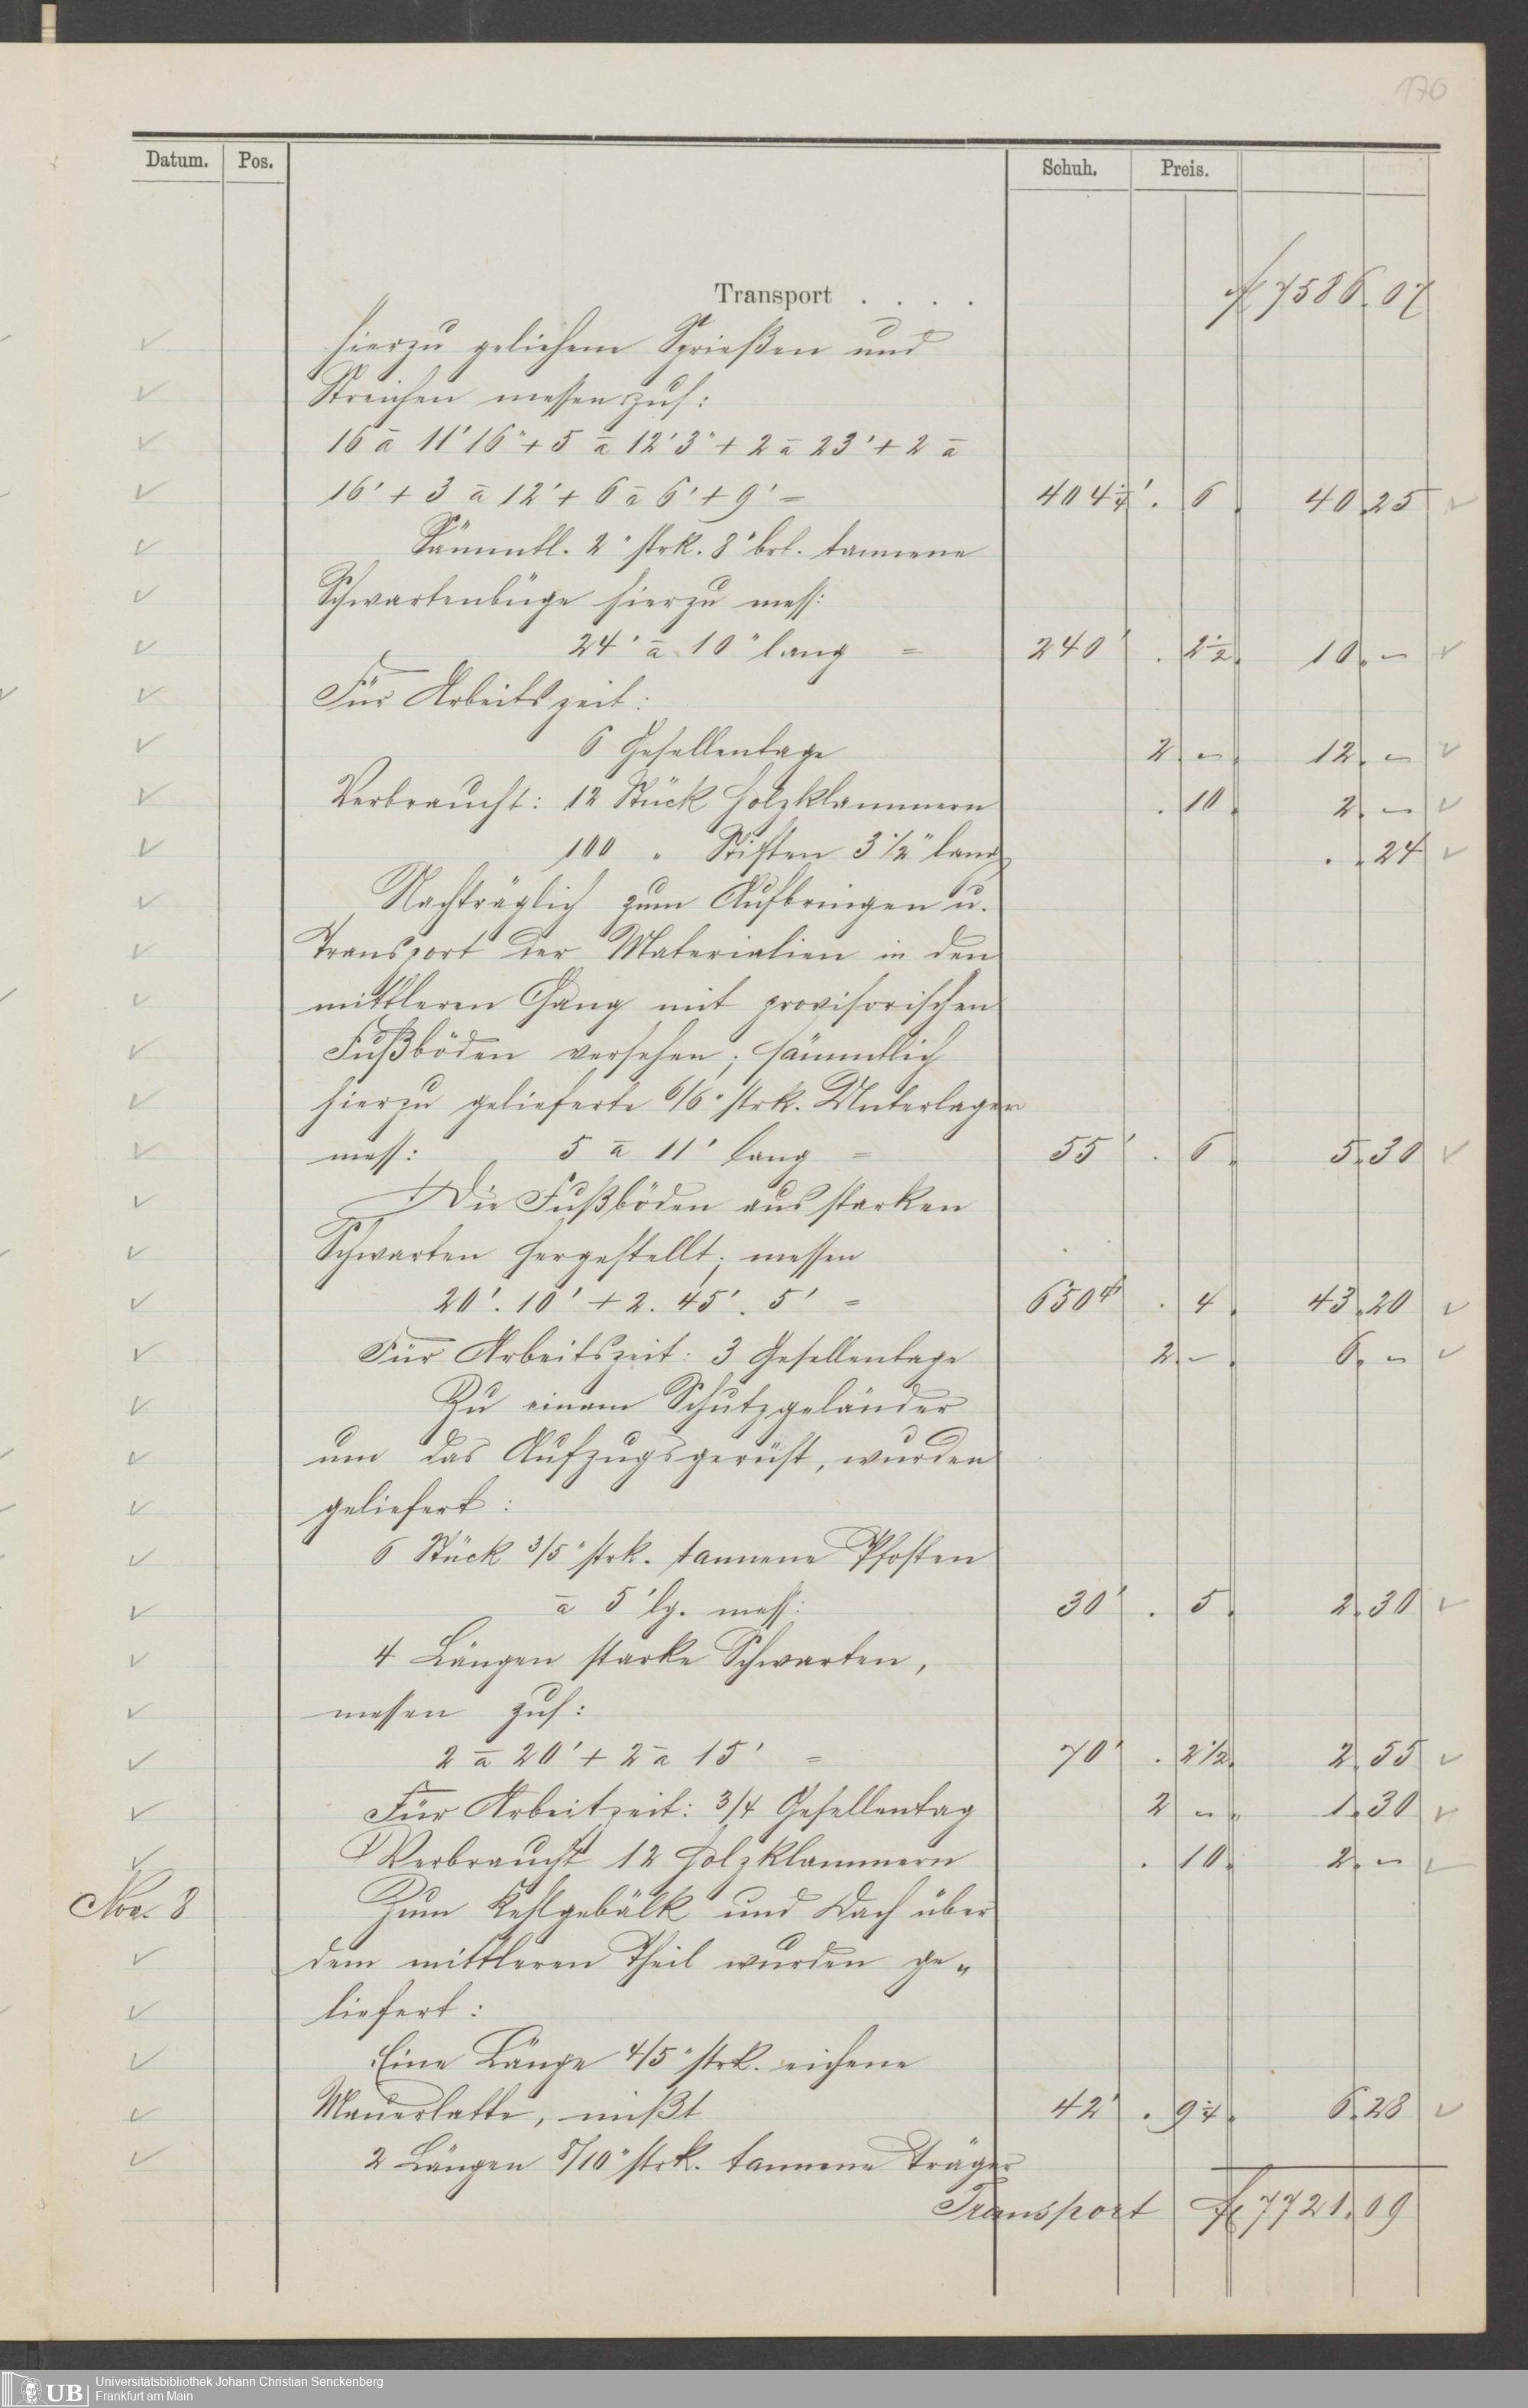 170
Datum. Pos. Schuh. Preis.
Transport . . . . f 7586. 07
hierzu geliehene Sprießen und
Streichen messen zus:
16 à 11' 16" + 5 à 12' 3" + 2 à 23' + 2 à
16' + 3 à 12' + 6 à 6' + 9' = 404¼' . 6. 40. 25
Sämmtl. 2" strk. 8" brt. tannene
Schwartenbüge hierzu mess:
24' à 10" lang = 240' . 2½. 10. –
Für Arbeitszeit:
6 Gesellentage 2. –. 12. –
Verbraucht: 12 Stück Holzklammern . 10. 2. –
100 " Stiften 3½" lang . . 24
Nachträglich zum Aufbringen u.
Transport der Materialien in den
mittleren Gang mit provisorischen
Fußböden versehen; sämmtlich
hierzu gelieferte 6/6" strk. Unterlager
mess: 5 à 11' lang = 55' . 6. 5. 30
Die Fußböden aus starken
Schwarten hergestellt; messen
20'. 10' + 2. 45'. 5' = 650 . 4. 43. 20
Für Arbeitszeit: 3 Gesellentage 2. –. 6. –
Zu einem Schutzgeländer
um das Aufzugsgerüst, wurden
geliefert:
6 Stück 3/5" strk. tannene Pfosten
à 5' lg. mess: 30' . 5. 2. 30
4 Längen starke Schwarten,
messen zus:
2 à 20' + 2 à 15' = 70' . 2½. 2. 55
Für Arbeitzeit: 3/4 Gesellentag 2 – " 1. 30
Verbraucht 12 Holzklammern . 10. 2. –
Nov. 8 Zum Kehlgebälk und Dach über
dem mittleren Theil wurden ge„
liefert:
Eine Länge 4/5" strk. eichene
Mauerlatte, mißt 42' . 9¼. 6. 28
2 Längen 8/10" strk. tannene Träger
Transport f 7721. 09
UB Universitätsbibliothek Johann Christian Senckenberg
Frankfurt am Main